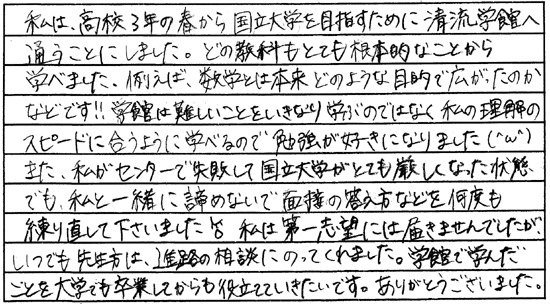 私は、高校3年の春から国立大学を目指すために清流学館へ
通うことにしました。どの教科もとても根本的なことから
学べました。例えば、数学とは本来どのような目的で広がったのか
などです!!学館は難しいことをいきなり学ぶのではなく私の理解の
スピードに合うように学べるので勉強が好きになりました(^ω^)
また、私がセンターで失敗して国立大学がとても厳しくなった状態
でも、私と一緒に諦めないで面接の答え方などを何度も
練り直して下さいました 私は第一志望には届きませんでしたが、
いつでも先生方は、進路の相談にのってくれました。学館で学んだ
ことを大学でも卒業してからも役立てていきたいです。ありがとうございました。